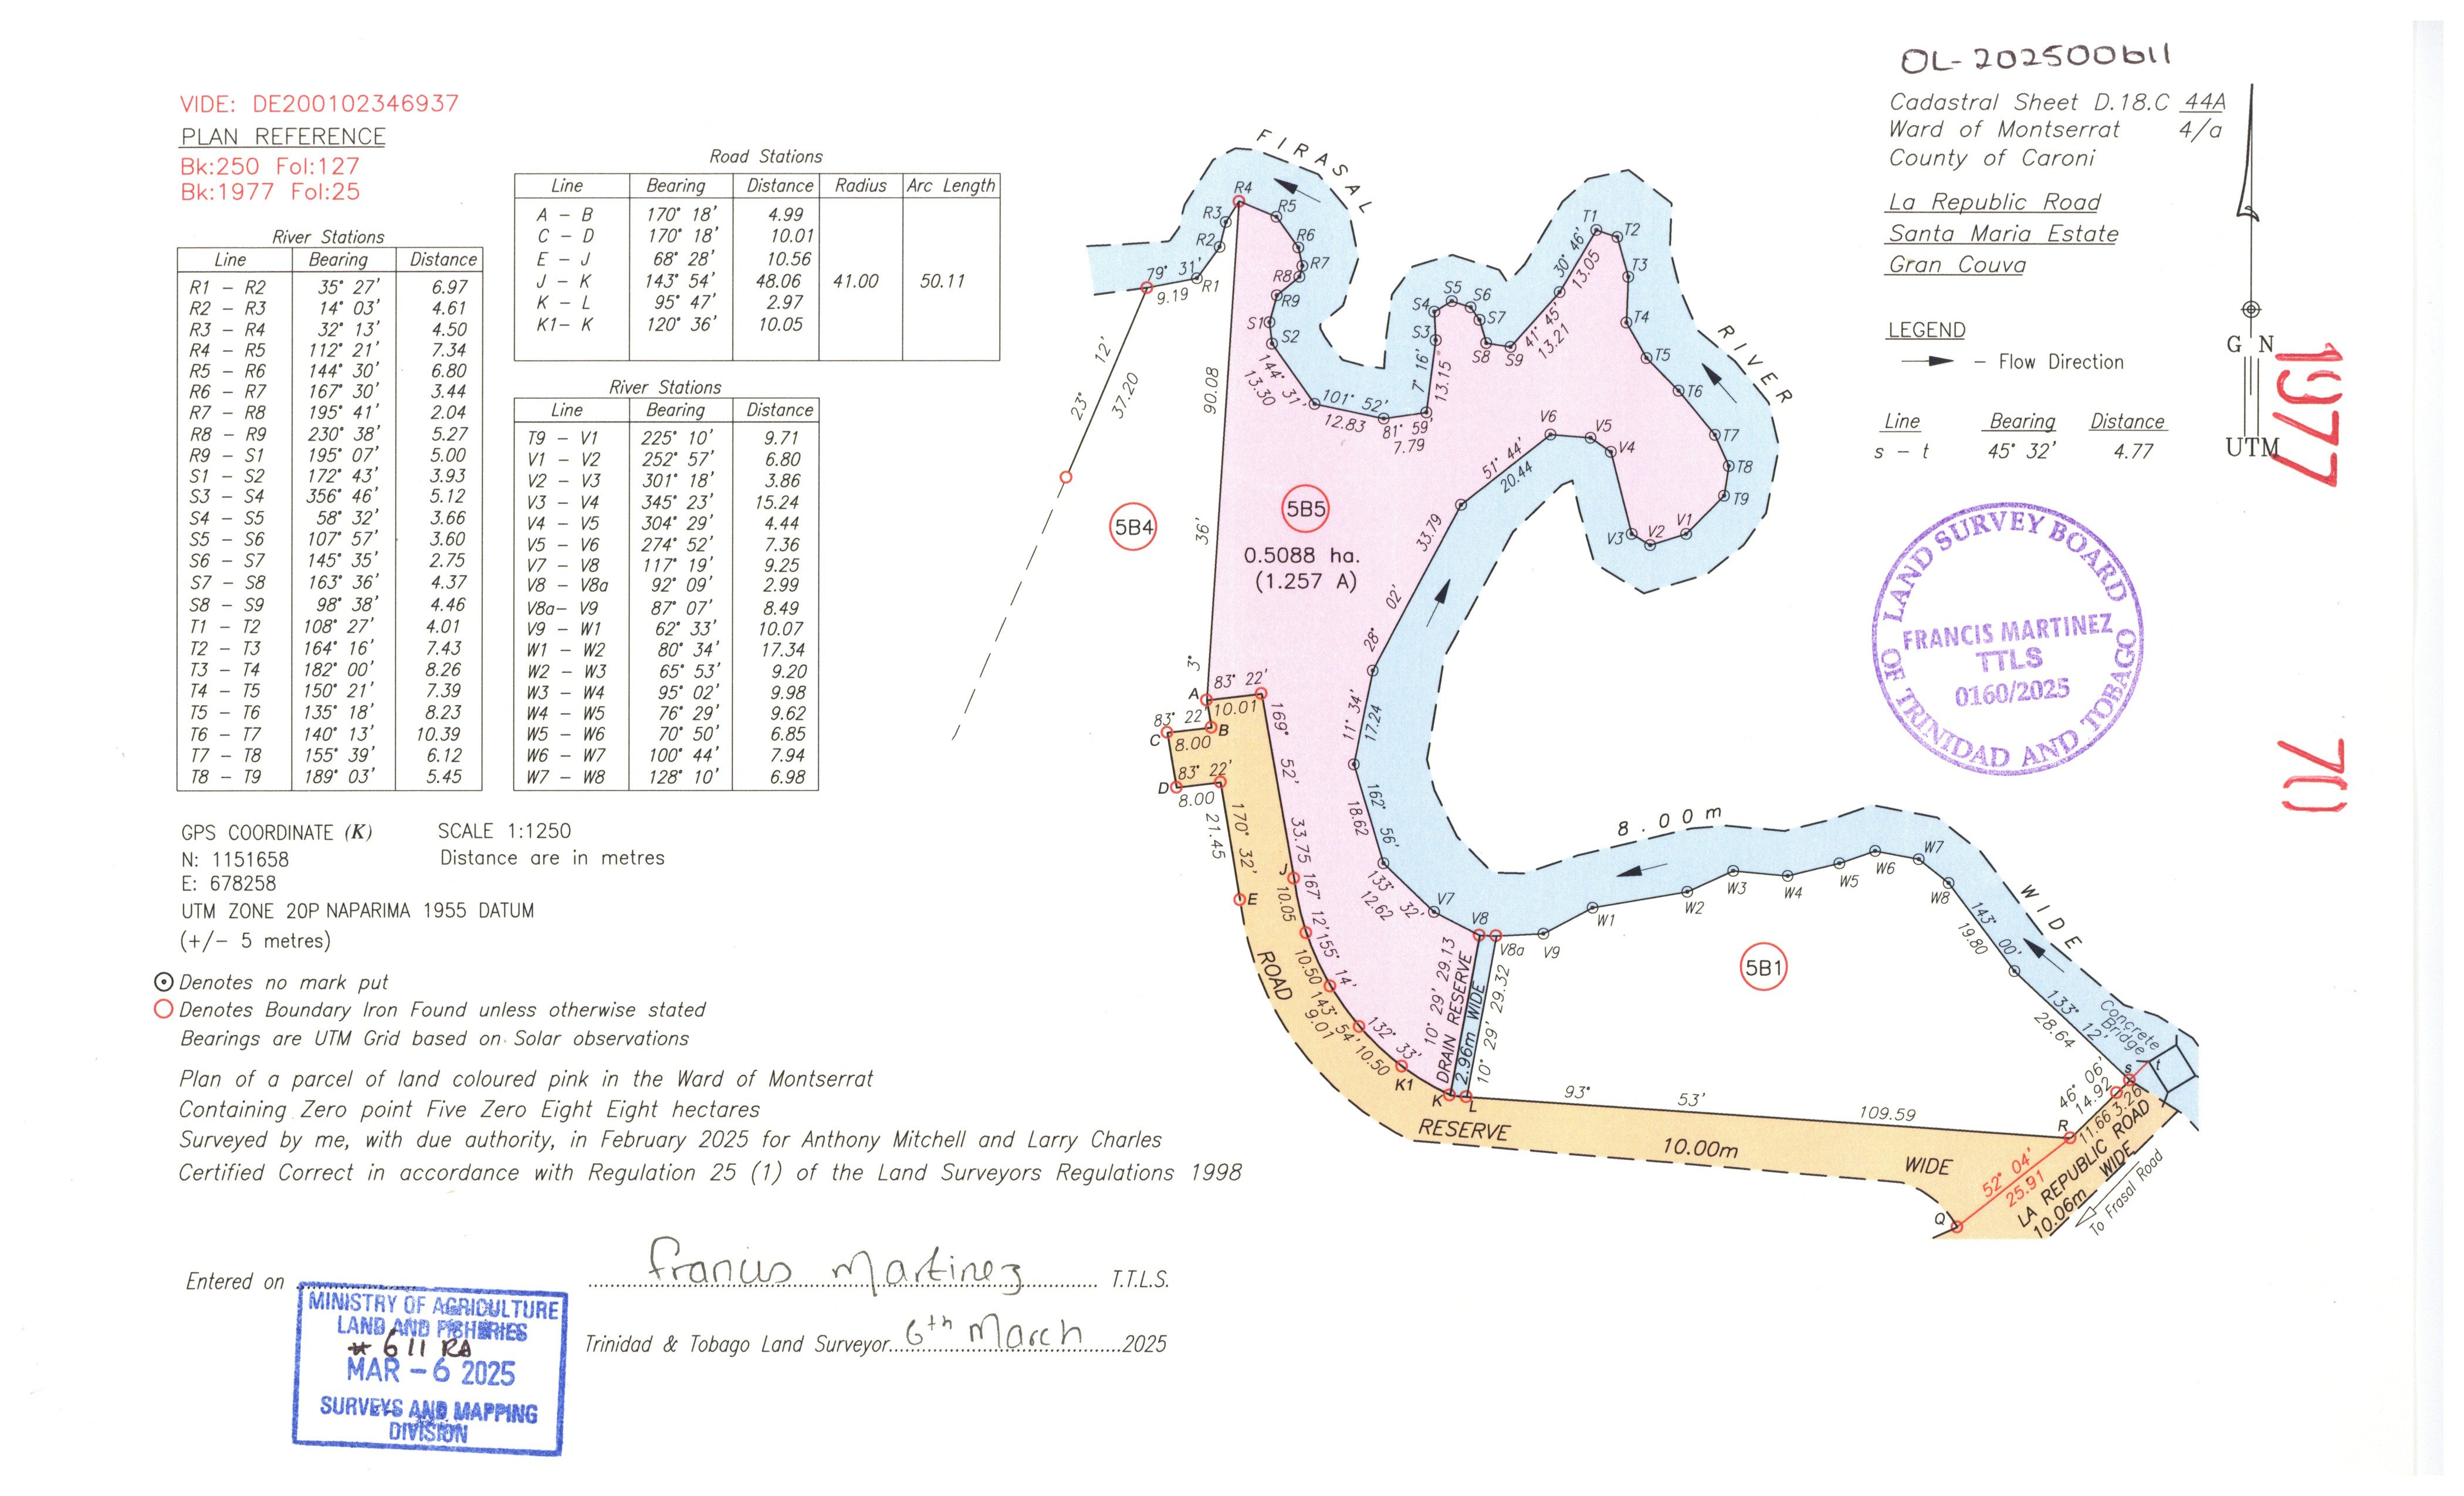 OL-202500611
VIDE: DE200102346937
PLAN REFERENCE
Bk:250 Fol:127
Bk:1977 Fol:25
River Stations
Line Bearing Distance
R1 – R2 35° 27' 6.97
R2 – R3 14° 03' 4.61
R3 – R4 32° 13' 4.50
R4 – R5 112° 21' 7.34
R5 – R6 144° 30' 6.80
R6 – R7 167° 30' 3.44
R7 – R8 195° 41' 2.04
R8 – R9 230° 38' 5.27
R9 – S1 195° 07' 5.00
S1 – S2 172° 43' 3.93
S3 – S4 356° 46' 5.12
S4 – S5 58° 32' 3.66
S5 – S6 107° 57' 3.60
S6 – S7 145° 35' 2.75
S7 – S8 163° 36' 4.37
S8 – S9 98° 38' 4.46
T1 – T2 108° 27' 4.01
T2 – T3 164° 16' 7.43
T3 – T4 182° 00' 8.26
T4 – T5 150° 21' 7.39
T5 – T6 135° 18' 8.23
T6 – T7 140° 13' 10.39
T7 – T8 155° 39' 6.12
T8 – T9 189° 03' 5.45
Road Stations
Line Bearing Distance Radius Arc Length
A – B 170° 18' 4.99
C – D 170° 18' 10.01
E – J 68° 28' 10.56
J – K 143° 54' 48.06 41.00 50.11
K – L 95° 47' 2.97
K1– K 120° 36' 10.05
River Stations
Line Bearing Distance
T9 – V1 225° 10' 9.71
V1 – V2 252° 57' 6.80
V2 – V3 301° 18' 3.86
V3 – V4 345° 23' 15.24
V4 – V5 304° 29' 4.44
V5 – V6 274° 52' 7.36
V7 – V8 117° 19' 9.25
V8 – V8a 92° 09' 2.99
V8a– V9 87° 07' 8.49
V9 – W1 62° 33' 10.07
W1 – W2 80° 34' 17.34
W2 – W3 65° 53' 9.20
W3 – W4 95° 02' 9.98
W4 – W5 76° 29' 9.62
W5 – W6 70° 50' 6.85
W6 – W7 100° 44' 7.94
W7 – W8 128° 10' 6.98
GPS COORDINATE (K)
N: 1151658
E: 678258
UTM ZONE 20P NAPARIMA 1955 DATUM
(+/– 5 metres)
SCALE 1:1250
Distance are in metres
Denotes no mark put
Denotes Boundary Iron Found unless otherwise stated
Bearings are UTM Grid based on Solar observations
Plan of a parcel of land coloured pink in the Ward of Montserrat
Containing Zero point Five Zero Eight Eight hectares
Surveyed by me, with due authority, in February 2025 for Anthony Mitchell and Larry Charles
Certified Correct in accordance with Regulation 25 (1) of the Land Surveyors Regulations 1998
Entered on
Francis Martinez T.T.L.S.
Trinidad & Tobago Land Surveyor 6th March 2025
MINISTRY OF AGRICULTURE
LAND AND FISHERIES
# 611 RA
MAR – 6 2025
SURVEYS AND MAPPING
DIVISION
Cadastral Sheet D.18.C 44A
4/a
Ward of Montserrat
County of Caroni
La Republic Road
Santa Maria Estate
Gran Couva
LEGEND
– Flow Direction
Line Bearing Distance
s – t 45° 32' 4.77
G N
UTM
1977
70
LAND SURVEY BOARD
OF TRINIDAD AND TOBAGO
FRANCIS MARTINEZ
TTLS
0160/2025
FIRASAL
RIVER
8.00m
WIDE
R4
R3
R5
R2
R6
R7
R8
R1
R9
S1
S2
79° 31'
9.19
23° 12'
37.20
3° 36'
90.08
144° 31'
13.30
101° 52'
12.83
81° 59'
7.79
7° 16'
13.15
S3
S4
S5
S6
S7
S8
S9
41° 45'
13.21
30° 46'
13.05
T1
T2
T3
T4
T5
T6
T7
T8
T9
V1
V2
V3
V4
V5
V6
51° 44'
20.44
28° 02'
33.79
11° 34'
17.24
162° 56'
18.62
133° 32'
12.62
V7
V8
V8a
V9
W1
W2
W3
W4
W5
W6
W7
W8
143° 00'
19.80
133° 12'
28.64
Concrete
Bridge
5B4
5B5
0.5088 ha.
(1.257 A)
5B1
A
83° 22'
10.01
B
83° 22'
8.00
C
83° 22'
8.00
D
170° 32'
21.45
E
169° 52'
33.75
J
167° 12'
10.05
155° 14'
10.50
143° 54'
9.01
132° 33'
10.50
K1
K
L
10° 29' 29.13
DRAIN RESERVE
2.96m WIDE
10° 29' 29.32
93° 53' 109.59
ROAD
RESERVE
10.00m
WIDE
R
s
t
46° 06'
14.92
11.66
3.26
52° 04'
25.91
Q
LA REPUBLIC ROAD
10.06m WIDE
To Frasal Road